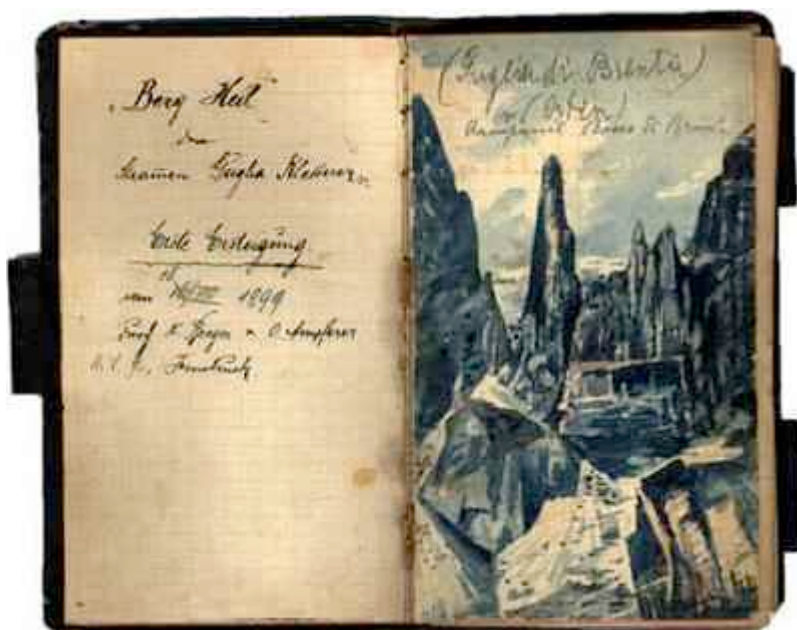 „Berg Heil"
den
Guglia
Erste Ersteigung
am 18/VIII 1899
durch K. Berger u. O. Ampferer
Innsbruck
(Guglia di Brenta)
Campanil Basso di Brenta